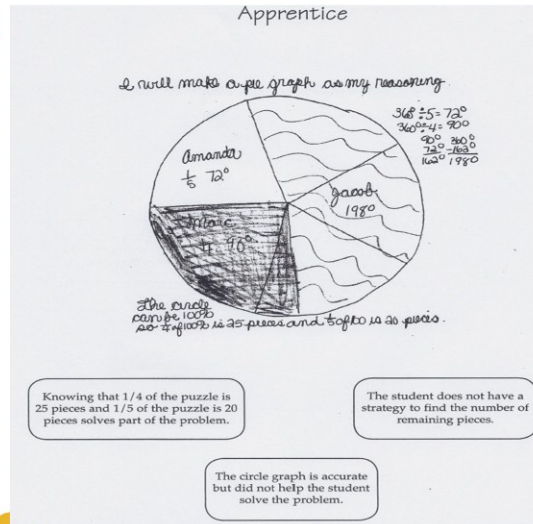 Apprentice
I will make a pie graph as my reasoning.
360° ÷ 5 = 72°
360° ÷ 4 = 90°
90° 360°
72° -162°
162° 198°
Amanda
1/5 72°
Jacob
198°
Marc
1/4 90°
The circle
can be 100%
so 1/4 of 100% is 25 pieces and 1/5 of 100 is 20 pieces.
Knowing that 1/4 of the puzzle is
25 pieces and 1/5 of the puzzle is 20
pieces solves part of the problem.
The student does not have a
strategy to find the number of
remaining pieces.
The circle graph is accurate
but did not help the student
solve the problem.